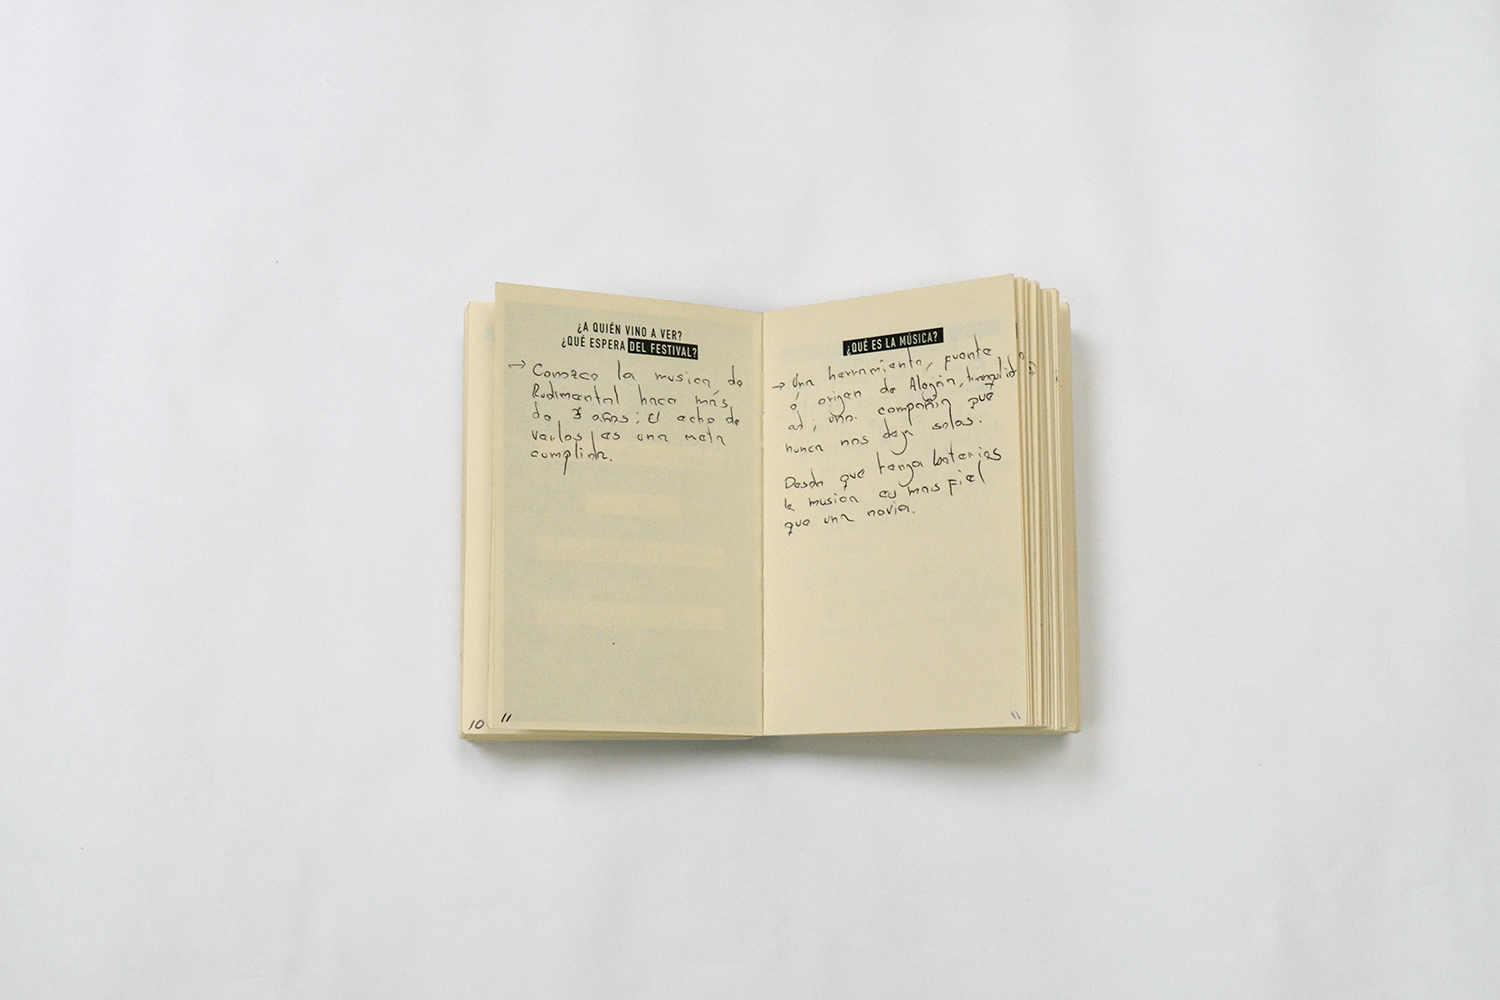 ¿A QUIÉN VINO A VER?
¿QUÉ ESPERA DEL FESTIVAL?
→ Conozco la musica de
Rudimental hace más
de 3 años; El echo de
verlos es una meta
cumplida.
10
11
¿QUÉ ES LA MÚSICA?
→ Una herramienta, fuente
ó origen de Alegria, tranquilid
ad; una compañia que
nunca nos deja solos.
Desde que tenga baterias
la musica es mas fiel
que una novia.
11